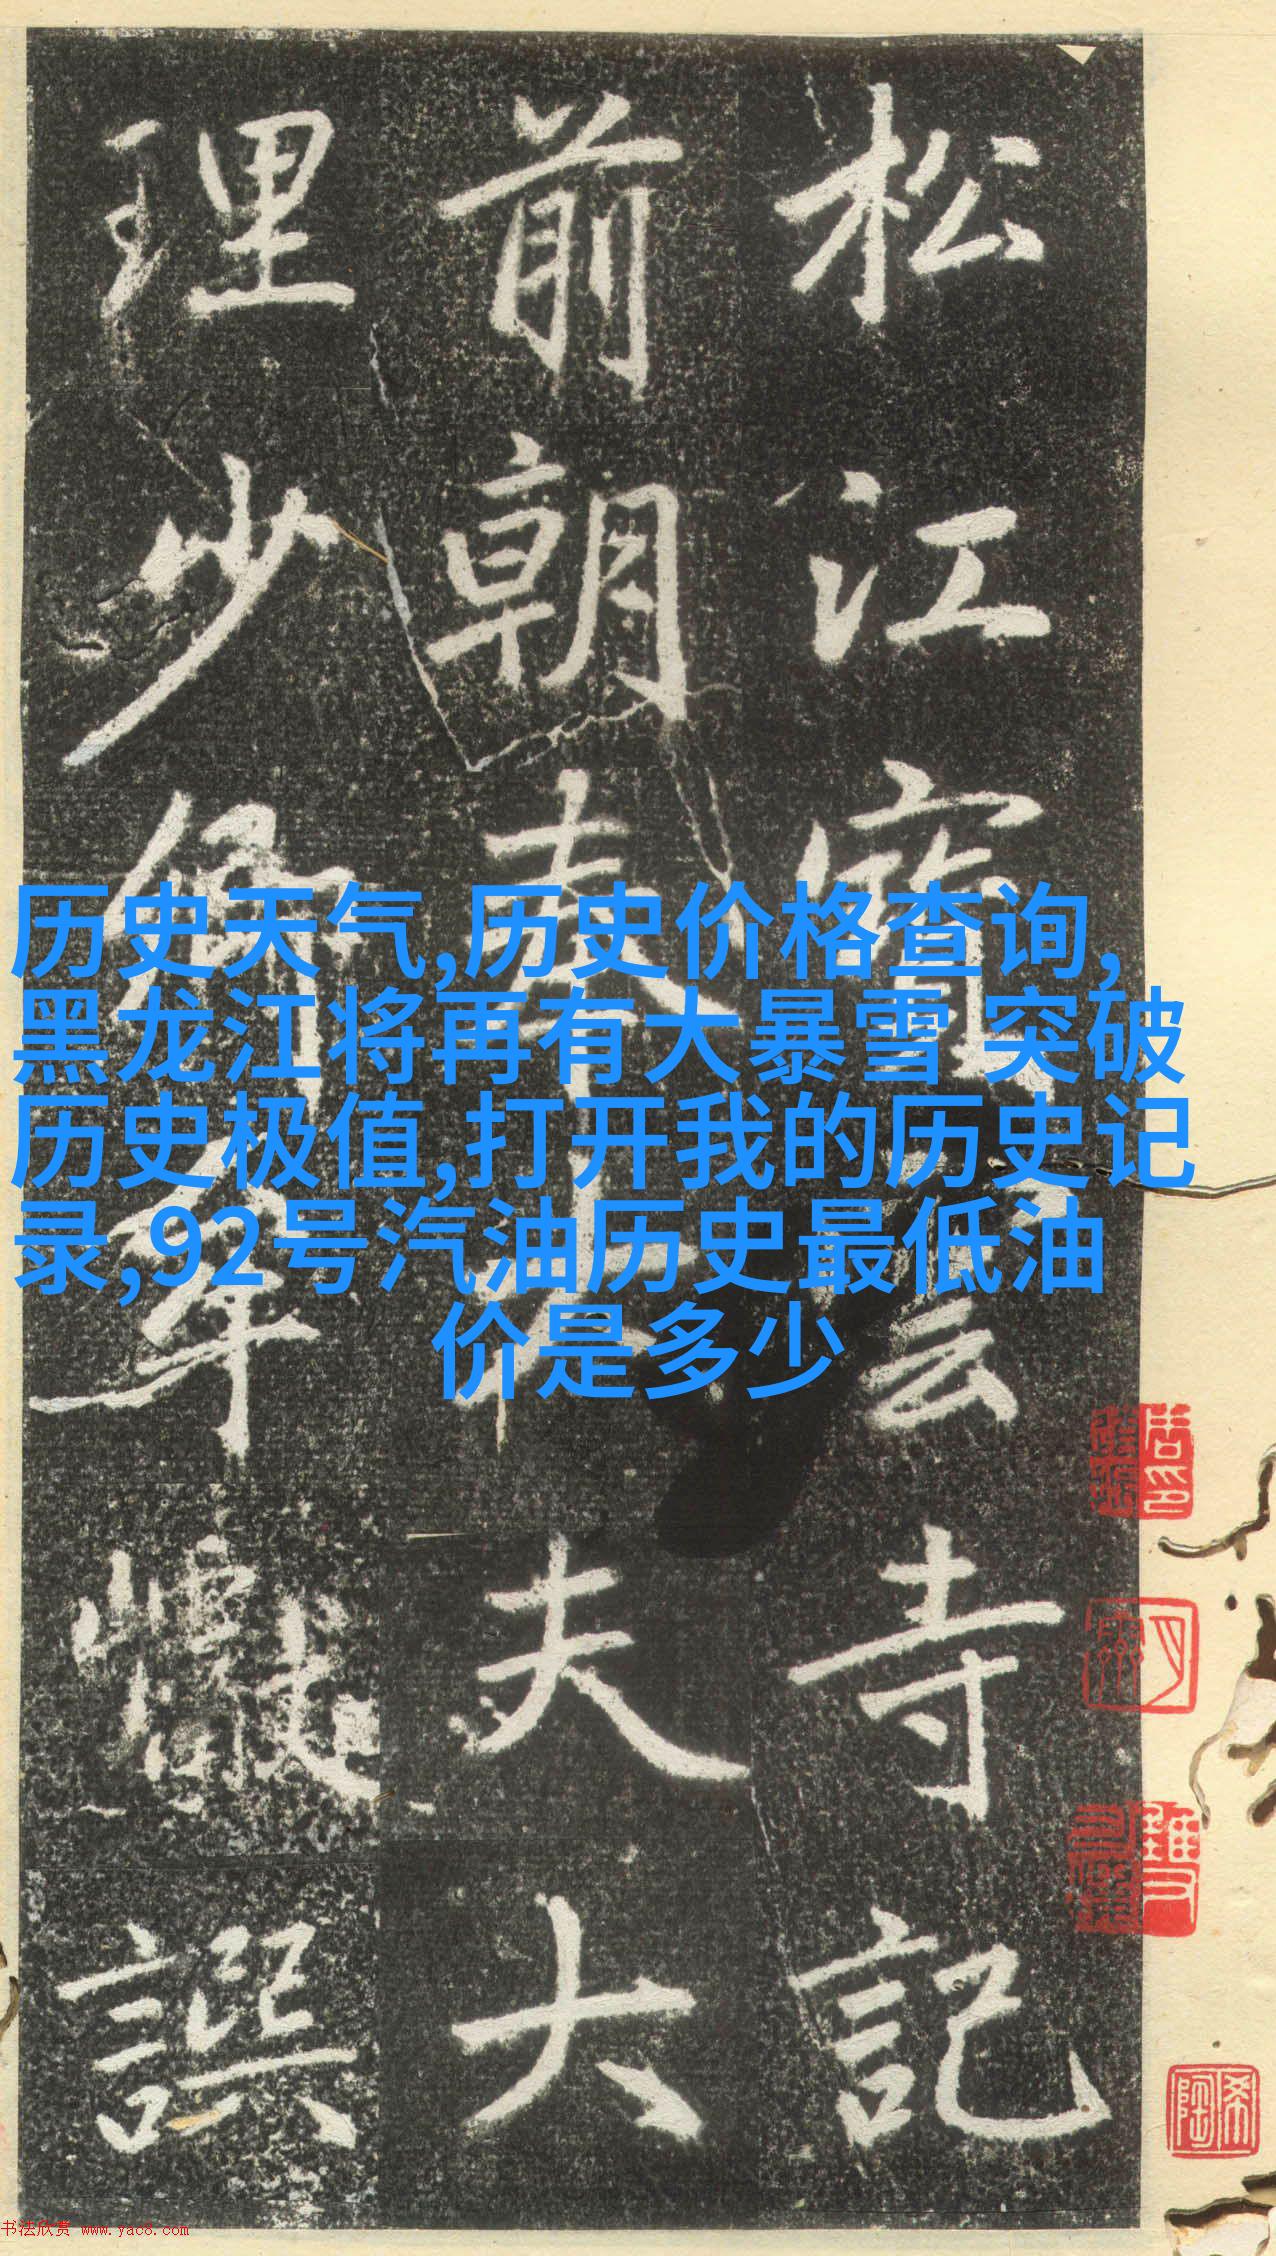 松江寳雲寺記
前朝奉大夫大
理少卿牟巘譔
历史天气,历史价格查询,
黑龙江将再有大暴雪 突破
历史极值,打开我的历史记
录,92号汽油历史最低油
价是多少
书法欣赏 www.yac8.com